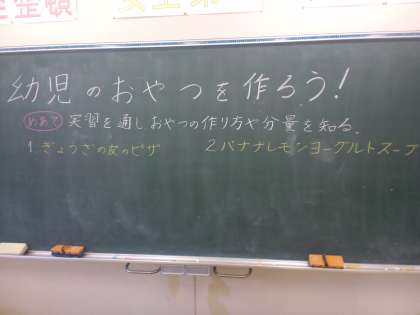 整頓
幼児のおやつを作ろう!
めあて 実習を通しおやつの作り方や分量を知る。
1.ぎょうざの皮のピザ 2.バナナレモンヨーグルトスープ